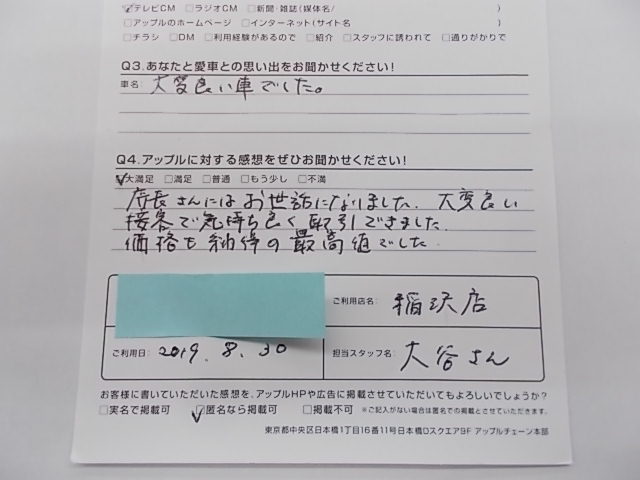 ☑テレビCM □ラジオCM □新聞・雑誌(媒体名/ )
□アップルのホームページ □インターネット(サイト名 )
□チラシ □DM □利用経験があるので □紹介 □スタッフに誘われて □通りがかりで
Q3.あなたと愛車との思い出をお聞かせください!
車名: 大変良い車でした。
Q4.アップルに対する感想をぜひお聞かせください!
☑大満足 □満足 □普通 □もう少し □不満
店長さんにはお世話になりました. 大変良い
接客で気持ち良く取引できました.
価格も納得の最高値でした.
ご利用店名: 稲沢店
ご利用日: 2019. 8. 30 担当スタッフ名: 大谷さん
お客様に書いていただいた感想を、アップルHPや広告に掲載させていただいてもよろしいでしょうか?
□実名で掲載可 ☑匿名なら掲載可 □掲載不可 ※ご記入がない場合は匿名での掲載とさせていただきます。
東京都中央区日本橋1丁目16番11号日本橋Dスクエア9F アップルチェーン本部